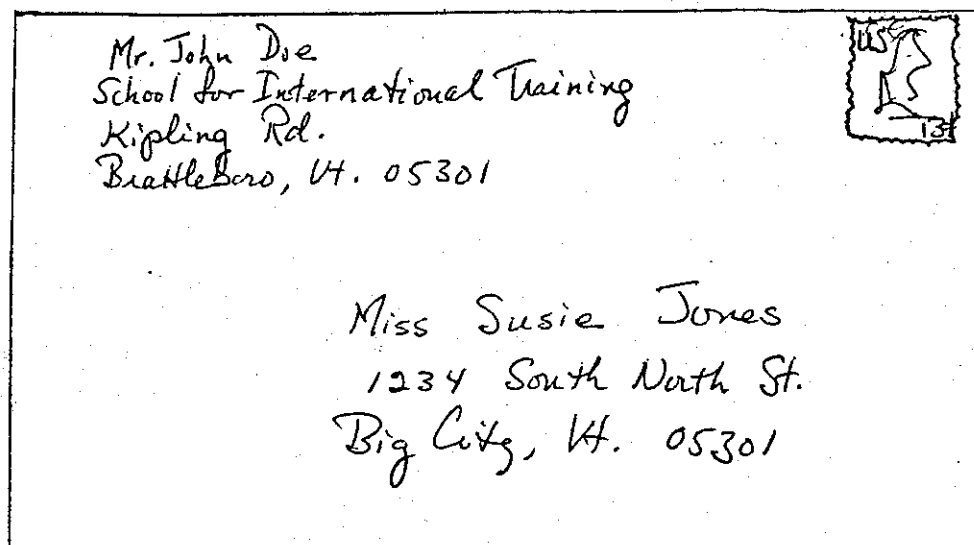 Mr. John Doe
School for International Training
Kipling Rd.
Brattleboro, Vt. 05301
US
13¢
Miss Susie Jones
1234 South North St.
Big City, Vt. 05301